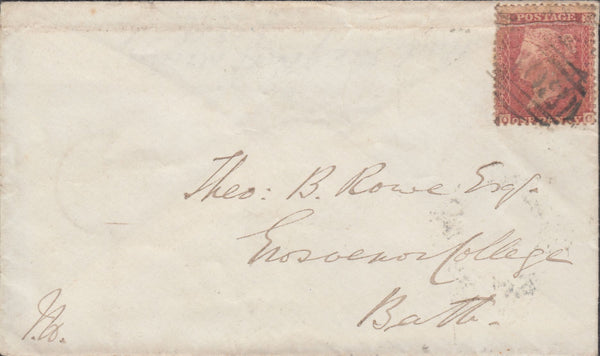 POSTAGE
ONE PENNY
Theo: B. Rowe Esqr.
Grosvenor College
Bath.